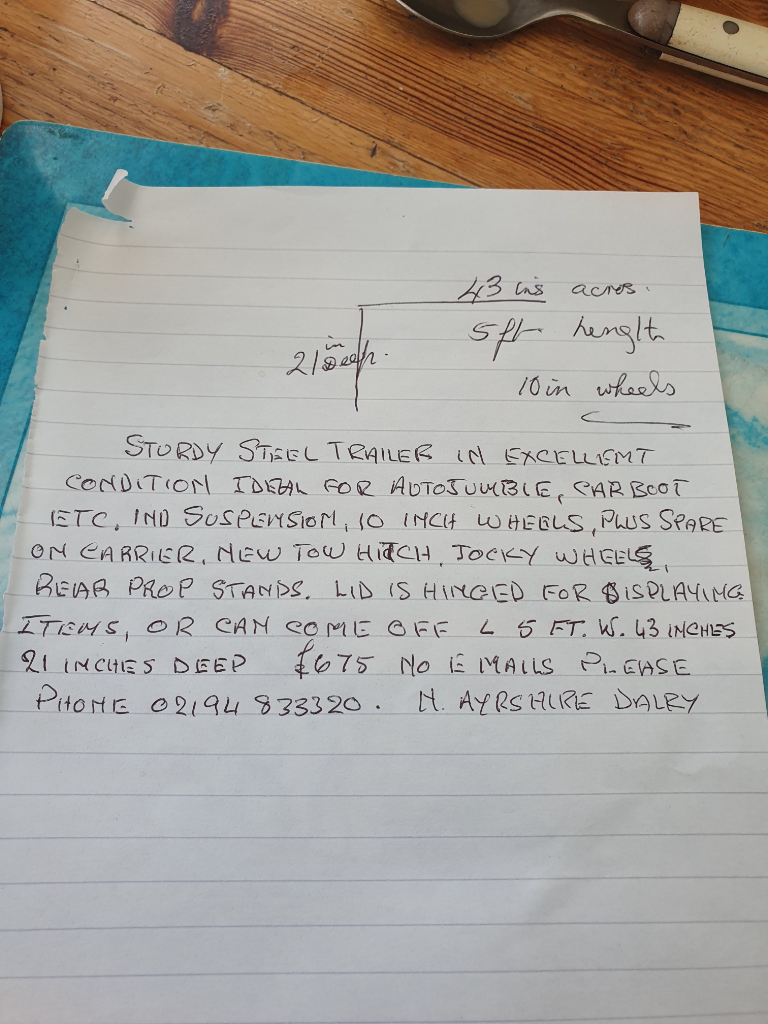 43 ins across.
21 in Deep.
5 ft length
10 in wheels
STURDY STEEL TRAILER IN EXCELLENT
CONDITION IDEAL FOR AUTOJUMBLE, CAR BOOT
ETC, IND SUSPENSION, 10 INCH WHEELS, PLUS SPARE
ON CARRIER. NEW TOW HITCH, JOCKY WHEELS,
REAR PROP STANDS. LID IS HINGED FOR DISPLAYING
ITEMS, OR CAN COME OFF L 5 FT. W. 43 INCHES
21 INCHES DEEP £675 NO EMAILS PLEASE
PHONE 02194 833320. N. AYRSHIRE DALRY